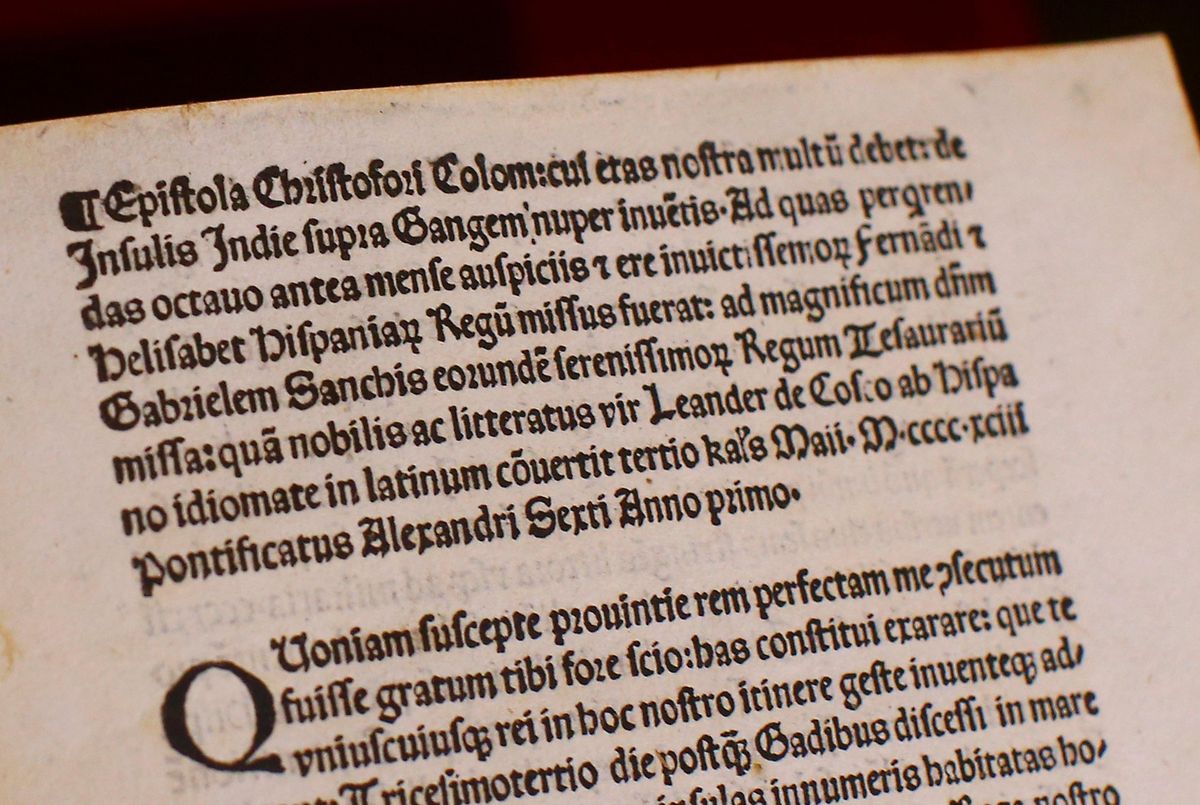 ¶ Epiſtola Chriſtofori Colom: cui etas noſtra multū debet: de
Inſulis Indie ſupra Gangem nuper inuētis. Ad quas perqren-
das octauo antea menſe auſpiciis ⁊ ere inuictiſſemoꝝ Fernādi ⁊
Heliſabet Hiſpaniaꝝ Regū miſſus fuerat: ad magnificum dñm
Gabrielem Sanchis eorundē ſereniſſimoꝝ Regum Teſaurariū
miſſa: quā nobilis ac litteratus vir Leander de Coſco ab Hiſpa
no idiomate in latinum cōuertit tertio kaƚs Maii. M.cccc.xciii
Pontificatus Alexandri Sexti Anno primo.
QUoniam ſuſcepte prouintie rem perfectam me ꝯſecutum
fuiſſe gratum tibi fore ſcio: has conſtitui exarare: que te
vniuſcuiuſqꝫ rei in hoc noſtro itinere geſte inuenteqꝫ ad-
Triceſimotertio die poſtq̄ꝫ Gadibus diſceſſi in mare
inſulas innumeris habitatas ho-
noſtro